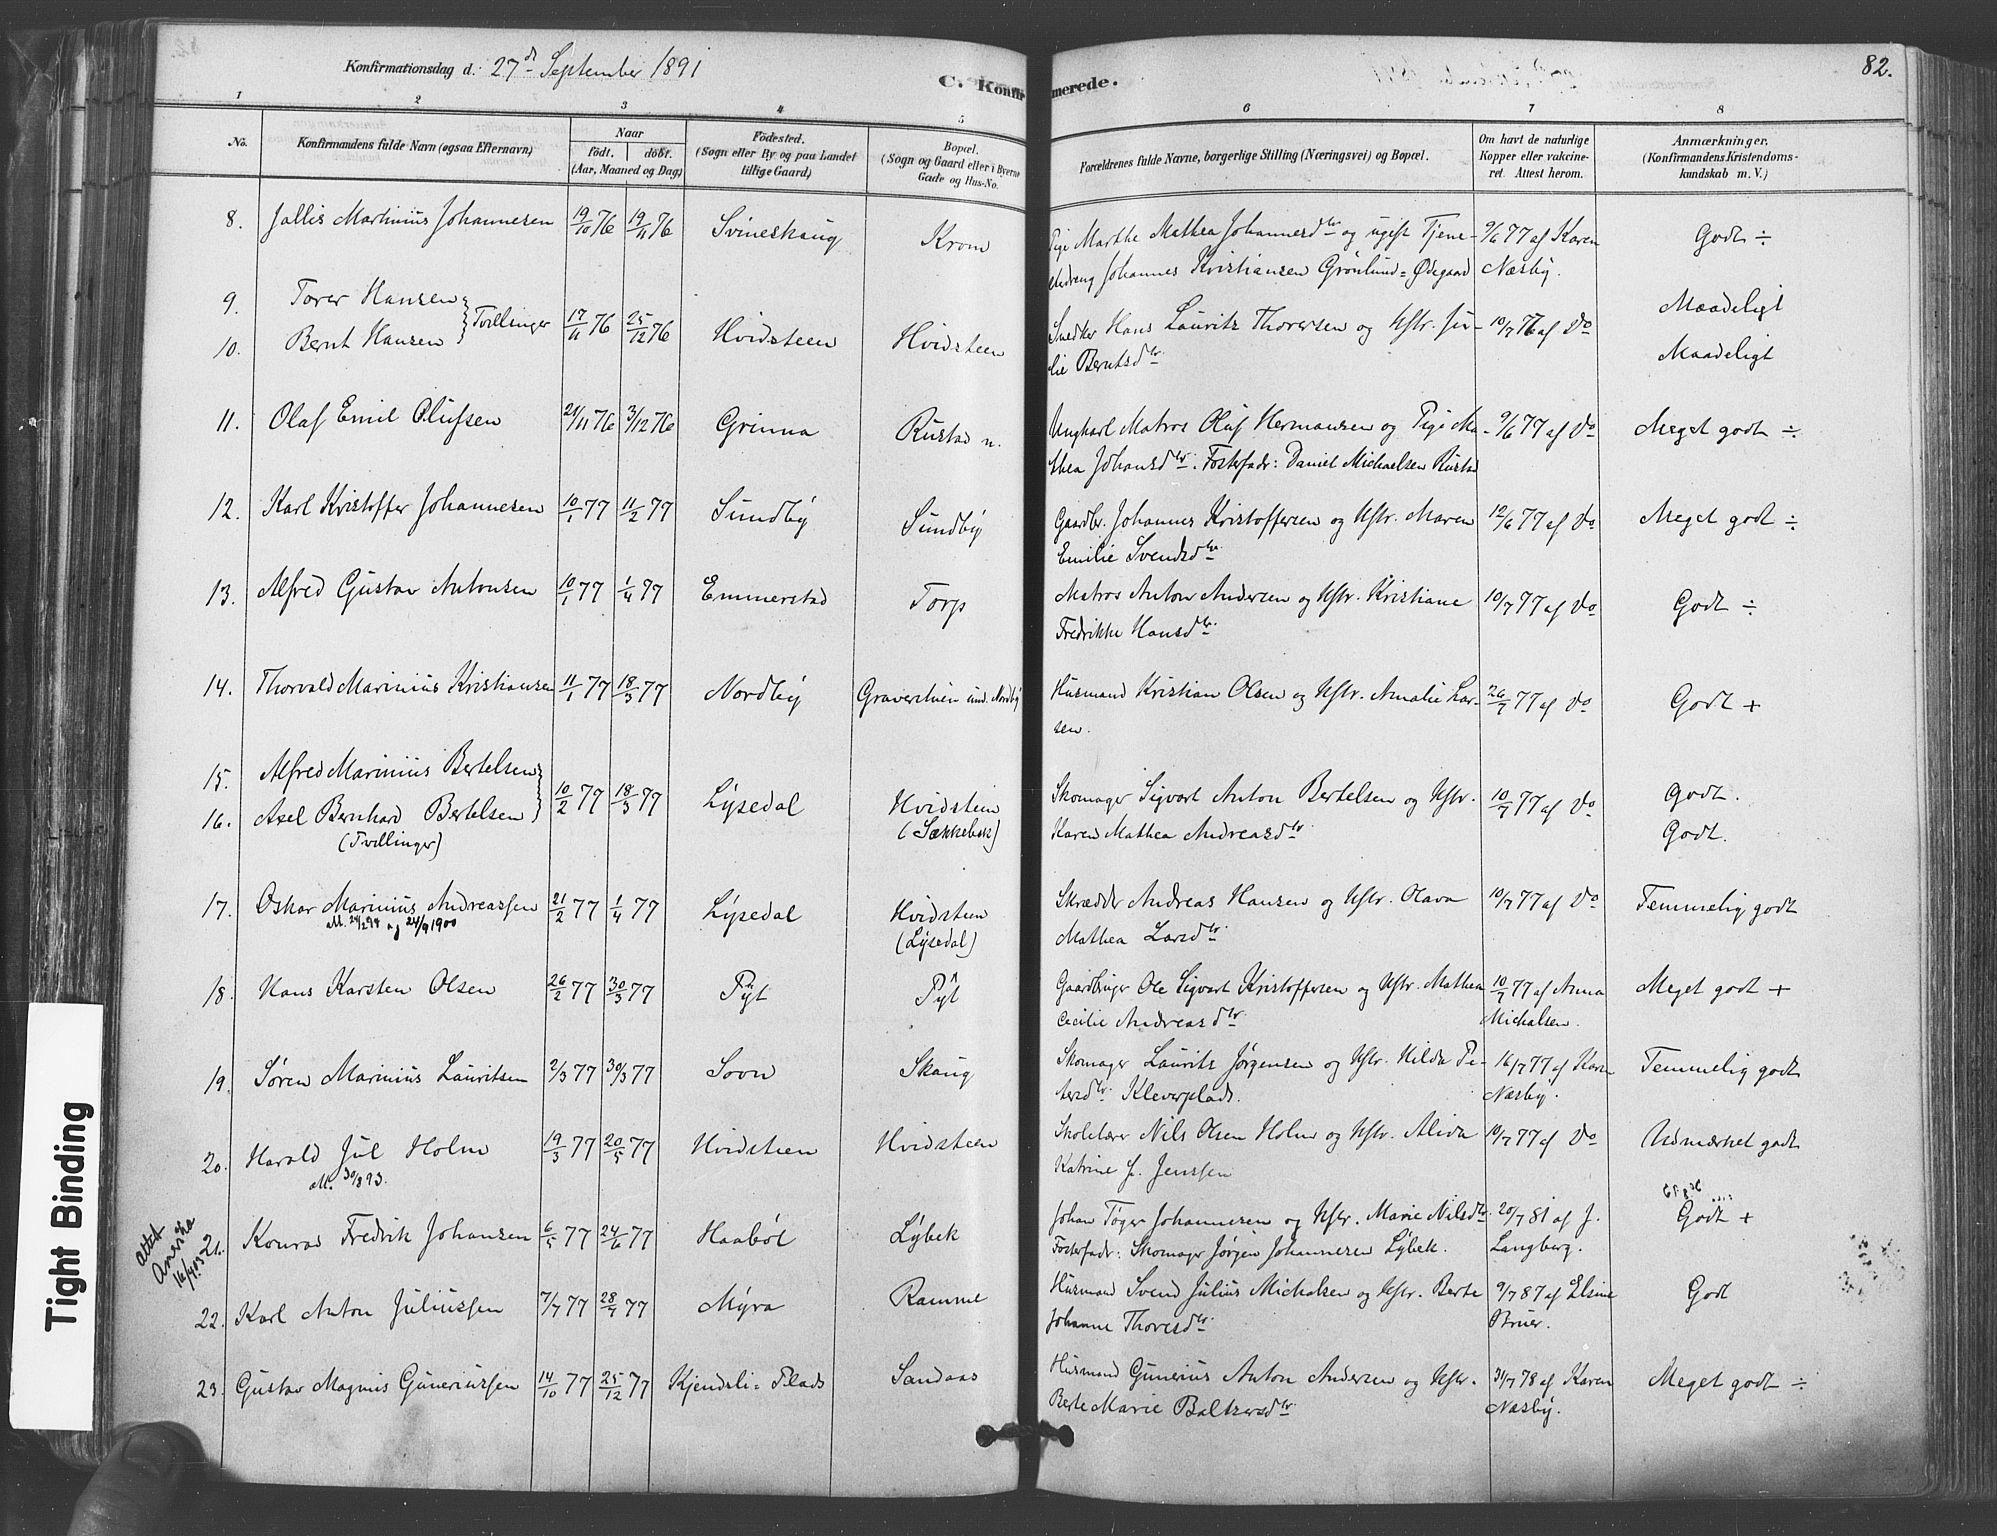 Konfirmationsdag d. 27de September 1891
C. Konfirmerede.
82.
1 2 3 4 5 6 7 8
No.
Konfirmandens fulde Navn (ogsaa Efternavn)
Naar
födt. döbt.
(Aar, Maaned og Dag)
Födested.
(Sogn eller By og paa Landet
tillige Gaard)
Bopæl.
(Sogn og Gaard eller i Byerne
Gade og Hus-No.
Forældrenes fulde Navne, borgerlige Stilling (Næringsvei) og Bopæl.
Om havt de naturlige
Kopper eller vakcine-
ret. Attest herom.
Anmærkninger.
(Konfirmandens Kristendoms-
kundskab m. V.)
8. Jallis Martinius Johannesen 19/10 76 19/11 76 Svineskaug Krom Pige Marthe Mathea Johannesdtr og ugift Tjene- 9/6 77 af Karen Godt ÷
stedreng Johannes Kristiansen Grönlund=Ødegaard Næsby.
9. Torer Hansen Maadeligt
Tvillinger 17/11 76 25/12 76 Hvidsteen Hvidsteen Snedker Hans Lauritz Thoresen og Hstr. Ju- 10/7 77 af Do
10. Bernt Hansen lie Berntsdtr. Maadeligt
11. Olaf Emil Olufsen 21/11 76 3/12 76 Grinna Rustad n. Ungkarl Matros Oluf Hermansen og Pige Ma- 9/6 77 af Do Meget godt ÷
thea Johansdtr. Fosterfadr: Daniel Michaelsen Rustad
12. Karl Kristoffer Johannesen 10/1 77 11/2 77 Sundby Sundby Gaardbr. Johannes Kristoffersen og Hstr. Maren 12/6 77 af Do Meget godt ÷
Emilie Svendsdtr
13. Alfred Gustav Antonsen 10/1 77 1/4 77 Emmerstad Torp Matros Anton Andersen og Hstr. Kristiane 10/7 77 af Do Godt ÷
Fredrikke Hansdtr.
14. Thorvald Marinius Kristiansen 11/1 77 18/3 77 Nordby Graverstuen und. Nordby Husmand Kristian Olsen og Hstr. Amalie Lar- 26/7 77 af Do Godt +
sen.
15. Alfred Marinius Bertelsen Godt.
10/2 77 18/3 77 Lysedal Hvidsteen Skomager Sigvart Anton Bertelsen og Hstr. 10/7 77 af Do
16. Axel Bernhard Bertelsen (Sækkebæk) Karen Mathea Andreasdtr Godt.
(Tvillinger)
17. Oskar Marinius Andreassen 21/2 77 1/4 77 Lysedal Hvidsteen Skrædder Andreas Hansen og Hstr. Olava 10/7 77 af Do Temmelig godt
og 24/9 1900 (Lysedal) Mathea Larsdtr.
18. Hans Karsten Olsen 26/2 77 30/3 77 Pyt Pyt Gaardbruger Ole Sigvart Kristoffersen og Hstr. Mathea 10/7 77 af Anna Meget godt +
Cecilie Andreasdtr Michalsen.
19. Søren Marinius Lauritsen 2/3 77 30/3 77 Sovn Skaug Skomager Laurits Jørgensen og Hstr. Hilda Pe- 16/7 77 af Karen Temmelig godt
tersdtr. Kleverplads. Næsby.
20. Harald Jül Holm 19/3 77 20/5 77 Hvidsteen Hvidsteen Skolelærer Nils Olsen Holm og Hstr. Alida 10/7 77 af Do Udmærket godt
att. 30/8 93. Katrine f. Jenssen
attest
Amerika
16/4 03
21. Konrad Fredrik Johansen 6/5 77 24/6 77 Haaböl Lybek Johan Tøger Johannesen og Hstr. Marie Nilsdtr. 20/7 81 af J. Godt +
Fosterfadr: Skomager Jørgen Johannesen Lybek. Langberg.
22. Karl Anton Juliussen 7/7 77 28/7 77 Myra Ramme Husmand Svend Julius Michalsen og Hstr. Berte 9/7 87 af Elsine Godt
Johanne Thoresdtr. Bruer.
23. Gustav Magnus Gunerussen 14/10 77 25/12 77 Kjendsli=Plads Sandaas Husmand Gunerius Anton Andersen og Hstr. 31/7 78 af Karen Meget godt ÷
Berte Marie Baltzersdtr. Næsby.
Tight Binding